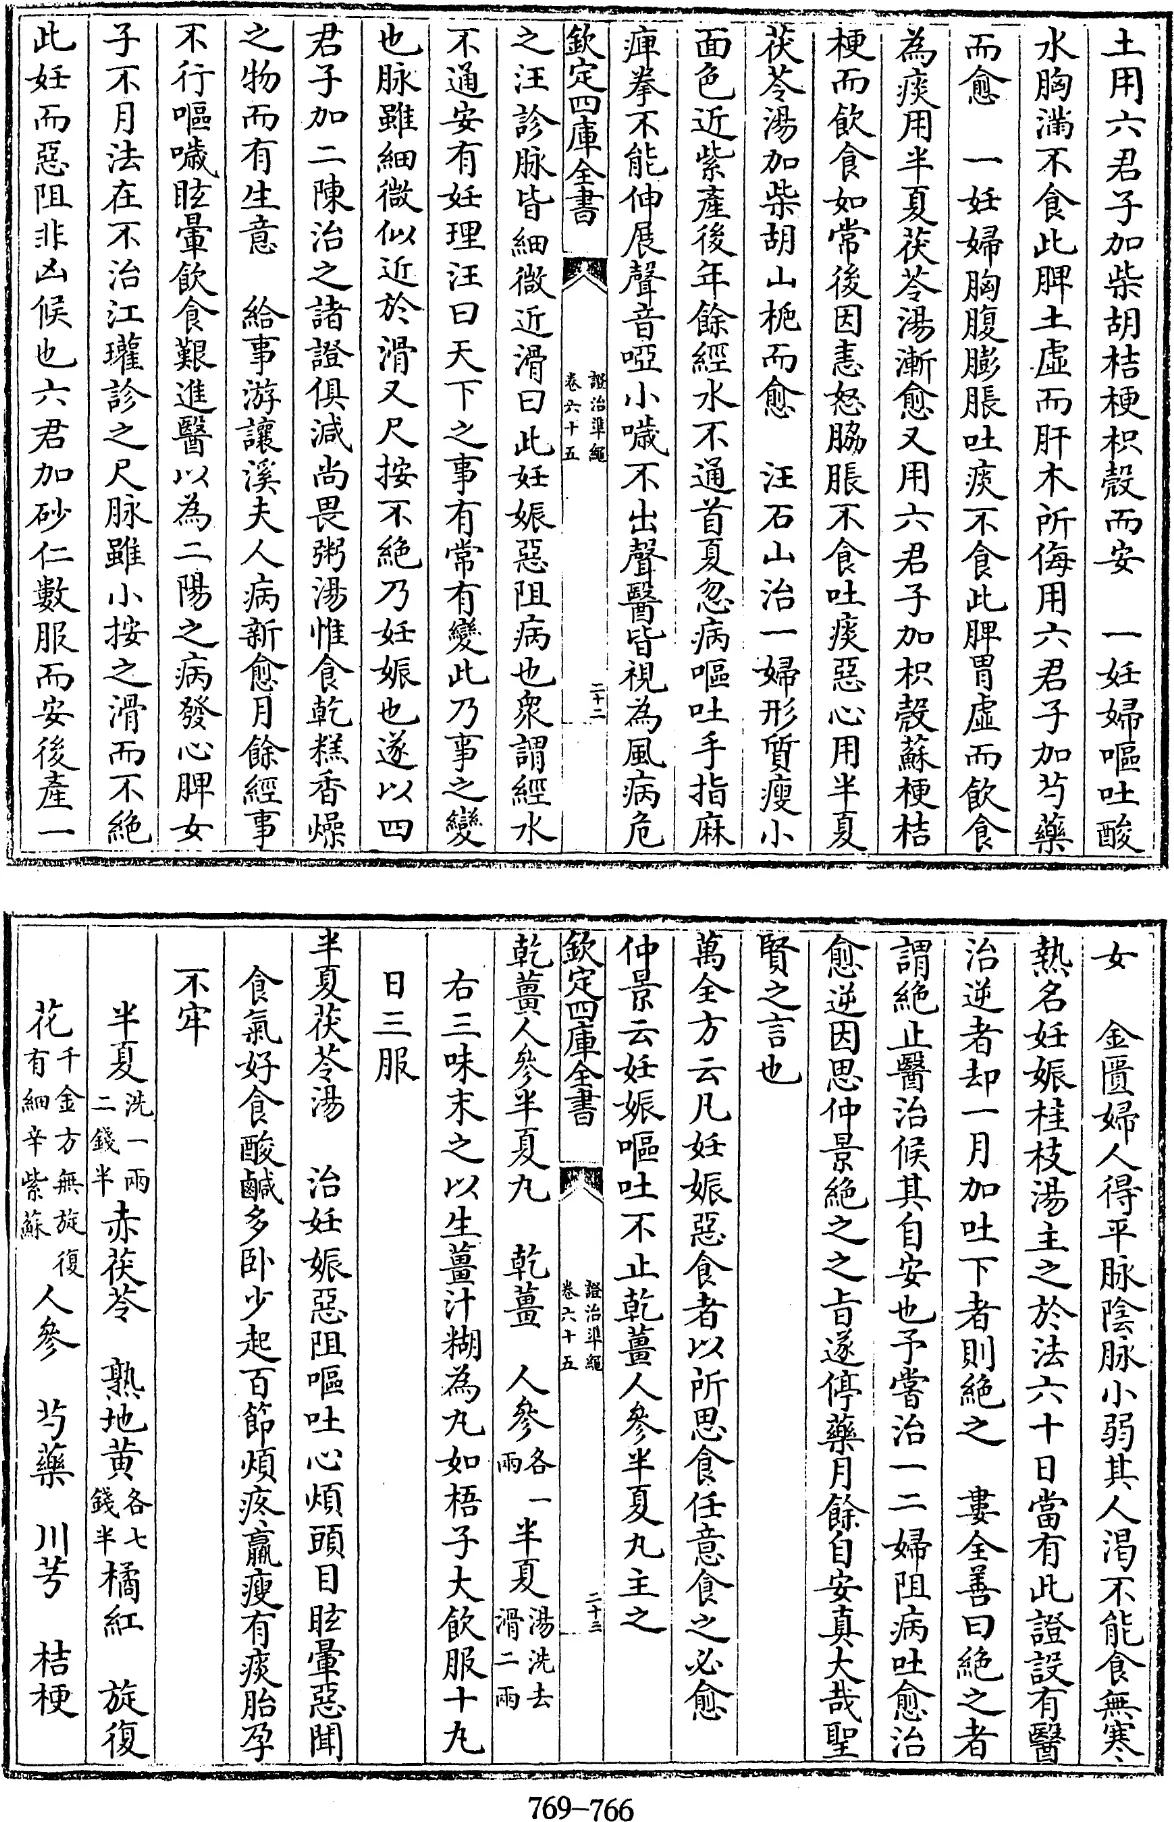 土用六君子加柴胡桔梗枳殼而安　一妊婦嘔吐酸
水胸滿不食此脾土虛而肝木所侮用六君子加芍藥
而愈　一妊婦胸腹膨脹吐痰不食此脾胃虛而飲食
為痰用半夏茯苓湯漸愈又用六君子加枳殼蘇梗桔
梗而飲食如常後因恚怒脇脹不食吐痰惡心用半夏
茯苓湯加柴胡山梔而愈　汪石山治一婦形質瘦小
面色近紫產後年餘經水不通首夏忽病嘔吐手指麻
痺拳不能伸展聲音啞小噦不出聲醫皆視為風病危
欽定四庫全書
證治準繩
卷六十五
二十二
之汪診脉皆細微近滑曰此妊娠惡阻病也衆謂經水
不通安有妊理汪曰天下之事有常有變此乃事之變
也脉雖細微似近於滑又尺按不絕乃妊娠也遂以四
君子加二陳治之諸證俱減尚畏粥湯惟食乾糕香燥
之物而有生意　給事游讓溪夫人病新愈月餘經事
不行嘔噦眩暈飲食艱進醫以為二陽之病發心脾女
子不月法在不治江瓘診之尺脉雖小按之滑而不絕
此妊而惡阻非凶候也六君加砂仁數服而安後產一
女　金匱婦人得平脉陰脉小弱其人渴不能食無寒
熱名妊娠桂枝湯主之於法六十日當有此證設有醫
治逆者却一月加吐下者則絕之　婁全善曰絕之者
謂絕止醫治候其自安也予嘗治一二婦阻病吐愈治
愈逆因思仲景絕之之旨遂停藥月餘自安真大哉聖
賢之言也
萬全方云凡妊娠惡食者以所思食任意食之必愈
仲景云妊娠嘔吐不止乾薑人參半夏丸主之
欽定四庫全書
證治準繩
卷六十五
二十三
乾薑人參半夏丸　乾薑　人參各一兩　半夏湯洗去滑二兩
右三味末之以生薑汁糊為丸如梧子大飲服十丸
日三服
半夏茯苓湯　治妊娠惡阻嘔吐心煩頭目眩暈惡聞
食氣好食酸鹹多臥少起百節煩疼羸瘦有痰胎孕
不牢
半夏洗一兩二錢半　赤茯苓　熟地黃各七錢半　橘紅　旋復
花千金方無旋復有細辛紫蘇　人參　芍藥　川芎　桔梗
769-766